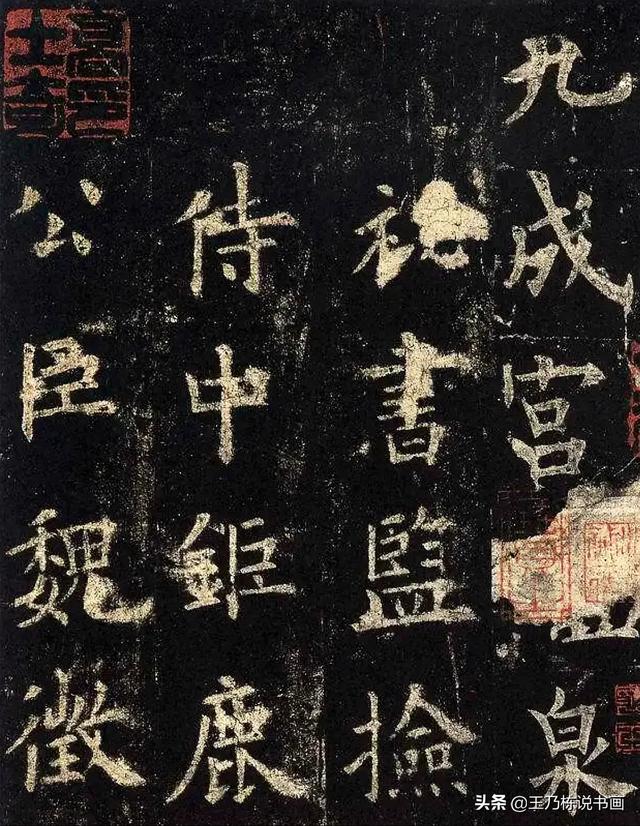 九成宮泉
書監撿
侍中鉅鹿
公臣魏徵
头条 @王乃栋说书画